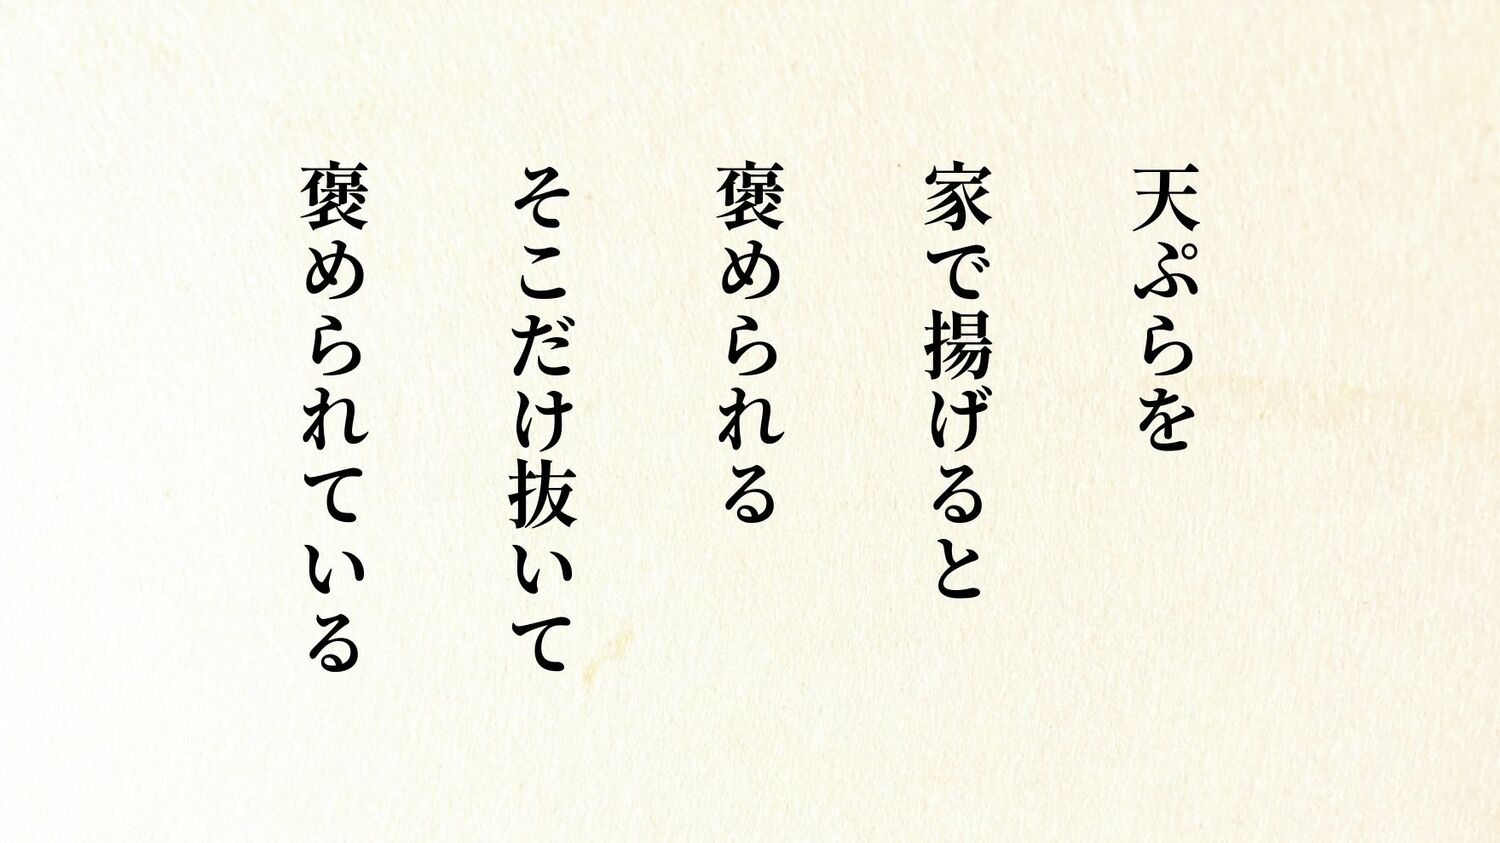 天ぷらを
家で揚げると
褒められる
そこだけ抜いて
褒められている